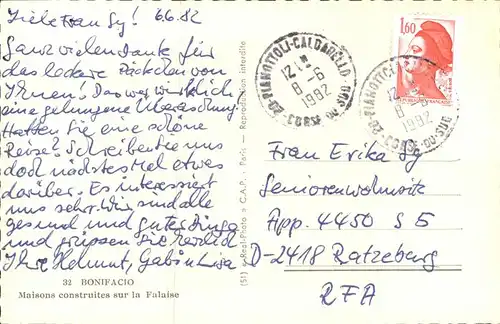 Liebe Frau Sy! 6.6.82
Ganz vielen Dank für
das leckere Päckchen von
Ihnen! Das war wirklich
eine gelungene Überraschung.
Hatten Sie eine schöne
Reise? Schreiben Sie uns
doch nächstes Mal etwas
darüber. Es interessiert
uns sehr. Wir sind alle
gesund und guter Dinge
und grüssen Sie herzlich
Ihre Helmut, Gabi u Lisa
32 BONIFACIO
Maisons construites sur la Falaise
(51) « Real-Photo » C.A.P. - Paris — Reproduction interdite
20-PIANOTTOLI-CALDARELLO
12 H
8-6
1982
CORSE DU SUD
1,60
20-PIANOTTOLI
12
8
1982
CORSE DU SUD
Frau Erika Sy
Seniorenwohnsitz
App. 4450 S 5
D-2418 Ratzeburg
RFA